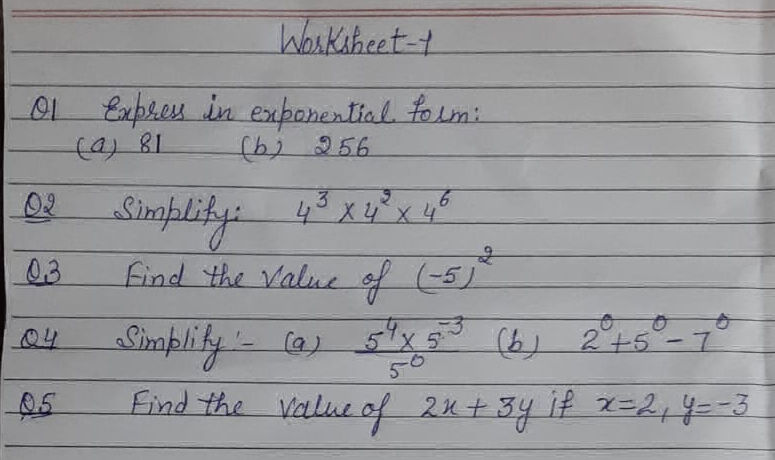 Worksheet-1
Q1 Express in exponential form:
(a) 81 (b) 256
Q2 Simplify: 4³ × 4² × 4⁶
Q3 Find the value of (-5)²
Q4 Simplify:- (a) 5⁴ × 5⁻³ / 5⁰ (b) 2⁰ + 5⁰ - 7⁰
Q5 Find the value of 2x + 3y if x=2, y=-3